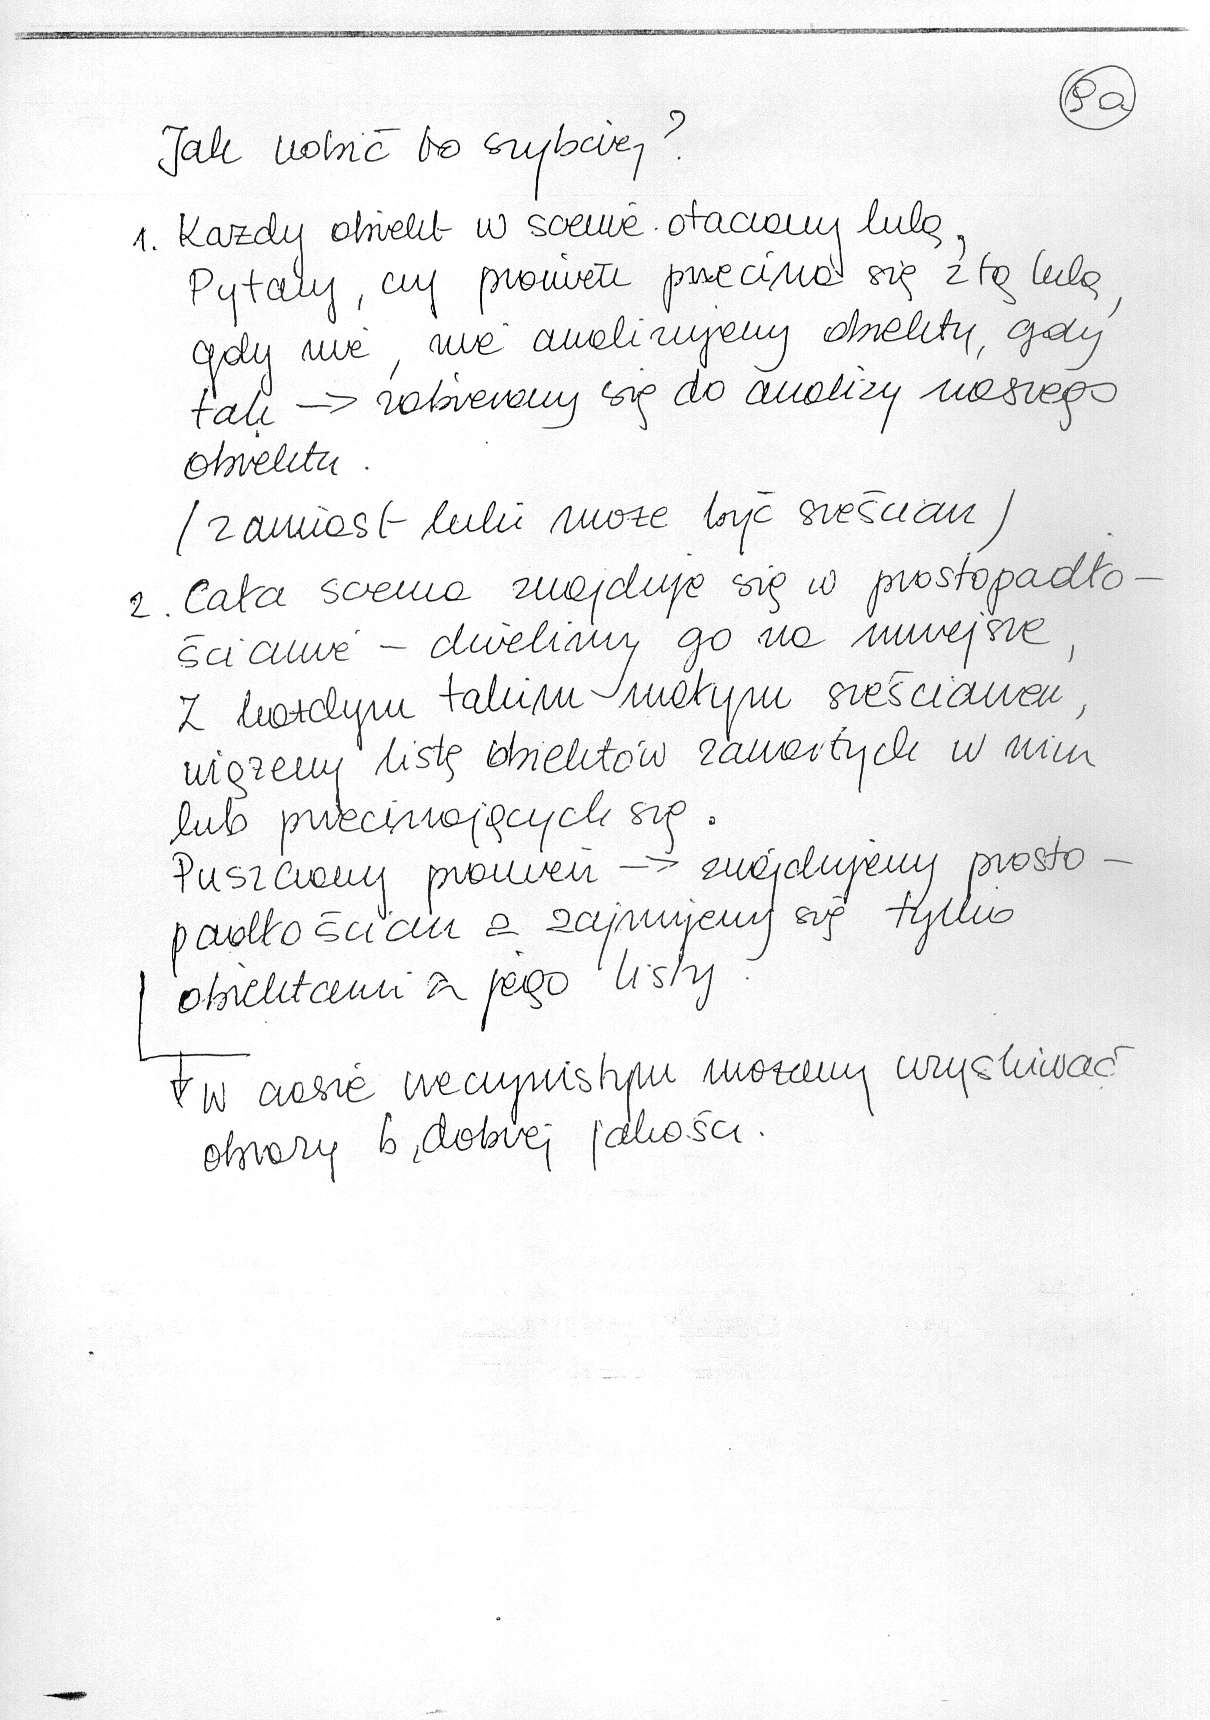 9a
Jak robić to szybciej?
1. Każdy obiekt w scenie otaczamy kulą,
Pytamy, czy promień przecina się z tą kulą,
gdy nie, nie analizujemy obiektu, gdy
tak -> zabieramy się do analizy naszego
obiektu.
(zamiast kuli może być sześcian)
2. Cała scena znajduje się w prostopadło-
ścianie - dzielimy go na mniejsze,
Z każdym takim małym sześcianem,
wiążemy listę obiektów zawartych w nim
lub przecinających się.
Puszczamy promień -> znajdujemy prosto-
padłościan i zajmujemy się tylko
obiektami z jego listy.
W czasie rzeczywistym możemy uzyskiwać
obrazy b. dobrej jakości.